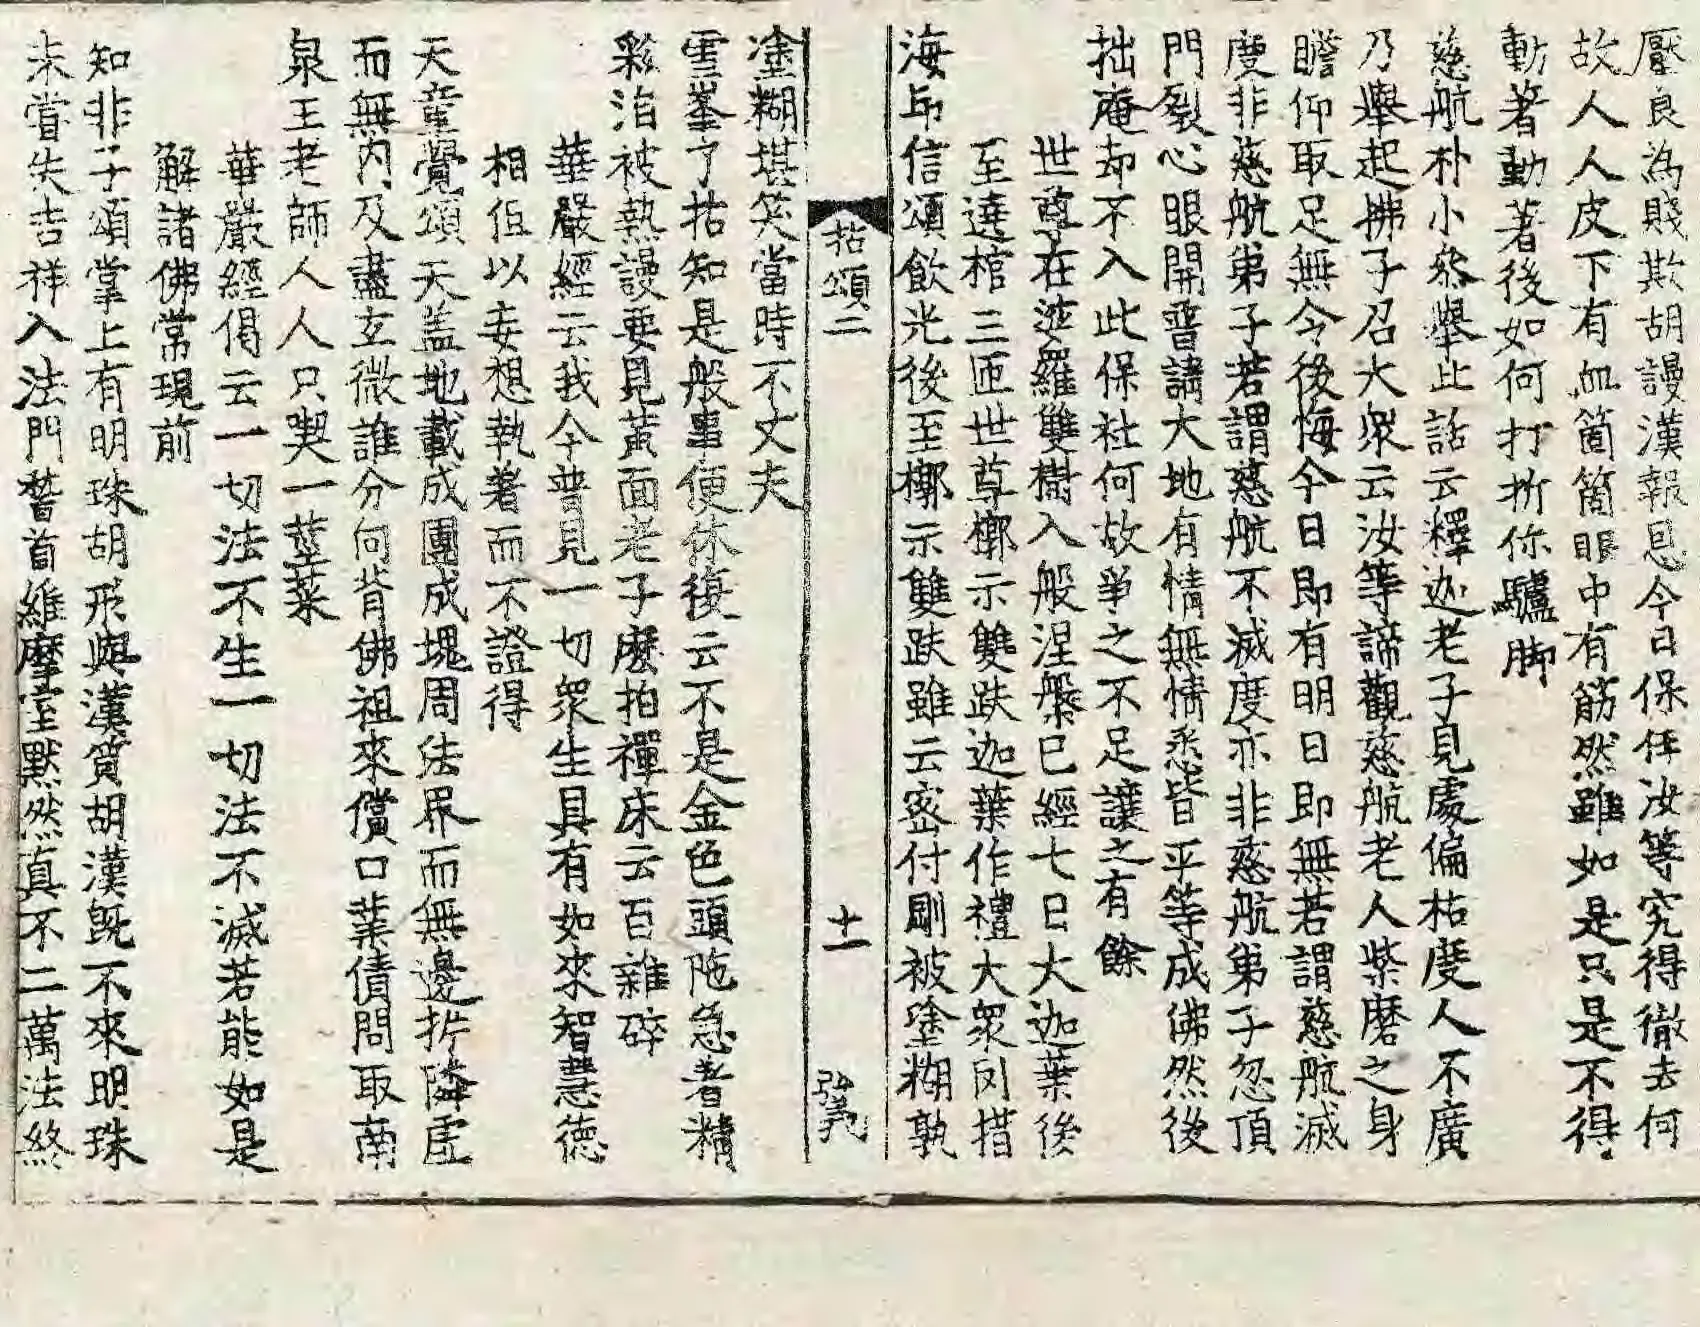 壓良為賤欺胡謾漢報恩今日保任汝等究得徹去何
故人人皮下有血箇箇眼中有筋然雖如是只是不得
動著動著後如何打折你驢脚
慈航朴小叅舉此話云釋迦老子見處偏枯度人不廣
乃舉起拂子召大衆云汝等諦觀慈航老人紫磨之身
瞻仰取足無令後悔今日即有明日即無若謂慈航滅
度非慈航弟子若謂慈航不滅度亦非慈航弟子忽頂
門裂心眼開普請大地有情無情悉皆平等成佛然後
拙庵却不入此保社何故爭之不足讓之有餘
世尊在娑羅雙樹入般涅槃已經七日大迦葉後
至遶棺三匝世尊槨示雙趺迦葉作禮大衆罔措
海印信頌飲光後至槨示雙趺雖云密付剛被塗糊孰
拈頌二
十一
弘義
塗糊堪笑當時不丈夫
雲峯了拈知是般事便休復云不是金色頭陁急著精
彩洎被熱謾要見黃面老子麽拍禪床云百雜碎
華嚴經云我今普見一切衆生具有如來智慧德
相但以妄想執著而不證得
天童覺頌天盖地載成團成塊周法界而無邊折隣虛
而無內及盡玄微誰分向背佛祖來償口業債問取南
泉王老師人人只喫一莖菜
華嚴經偈云一切法不生一切法不滅若能如是
解諸佛常現前
知非子頌掌上有明珠胡形與漢質胡漢旣不來明珠
未甞失吉祥入法門𥡴首維摩室默然真不二萬法終